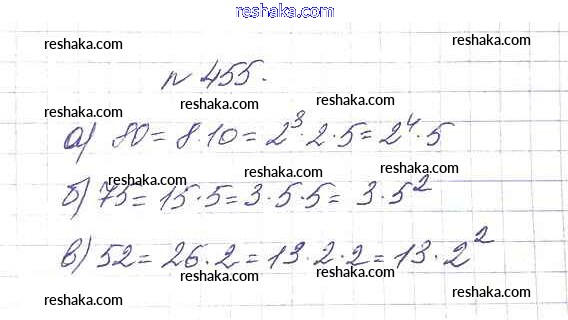 reshaka.com
reshaka.com reshaka.com
№ 455.
reshaka.com reshaka.com reshaka.com
а) 80 = 8 · 10 = 2³ · 2 · 5 = 2⁴ · 5
reshaka.com reshaka.com reshaka.com
б) 75 = 15 · 5 = 3 · 5 · 5 = 3 · 5²
reshaka.com reshaka.com reshaka.com
в) 52 = 26 · 2 = 13 · 2 · 2 = 13 · 2²
reshaka.com reshaka.com reshaka.com reshaka.com